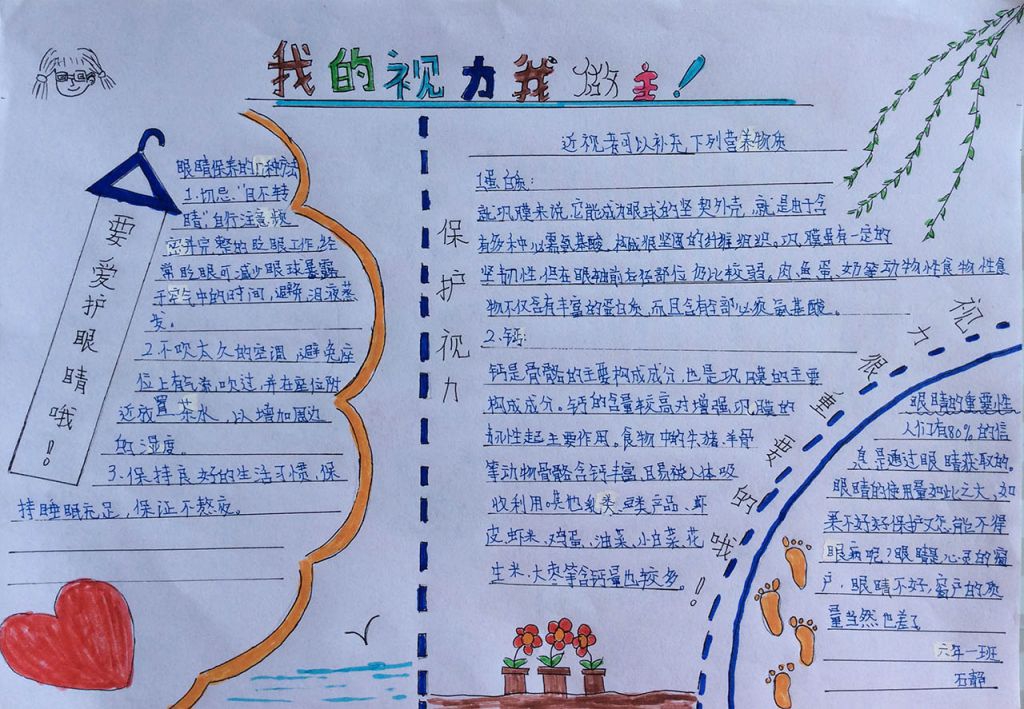 我的视力我做主！
要爱护眼睛哦！
眼睛保养的几种方法
1.切忌“目不转
睛”,自行注意频
密并完整的眨眼工作,经
常眨眼可减少眼球暴露
于空气中的时间,避免泪液蒸
发。
2.不吹太久的空调,避免座
位上有气流吹过,并在座位附
近放置茶水,以增加周边
的湿度。
3.保持良好的生活习惯,保
持睡眠充足,保证不熬夜。
保护视力
近视者可以补充下列营养物质
1蛋白质:
就巩膜来说,它能成为眼球的坚 外壳,就是由于含
有多种必需氨基酸,构成很坚固的纤维组织。巩膜虽有一定的
坚韧性,但在眼轴前后径部位仍比较弱。肉、鱼、蛋、奶等动物性食物性食
物不仅含有丰富的蛋白质,而且含有全部必须氨基酸。
2.钙:
钙是骨骼的主要构成成分,也是巩膜的主要
构成成分。钙的含量较高对增强巩膜的
韧性起主要作用。食物中的牛、猪、羊骨
等动物骨骼含钙丰富,且易被人体吸
收利用。其他乳类、豆类产品、虾
皮、虾米、鸡蛋、油菜、小白菜、花
生米、大枣等含钙量也较多。
视力很重要的哦！
眼睛的重要性
人们有80%的信
息是通过眼睛获取的。
眼睛的使用量如此之大,如
果不好好保护又怎能不得
眼病呢?眼睛是心灵的窗
户,眼睛不好,窗户的质
量当然也差了
六年一班
石静